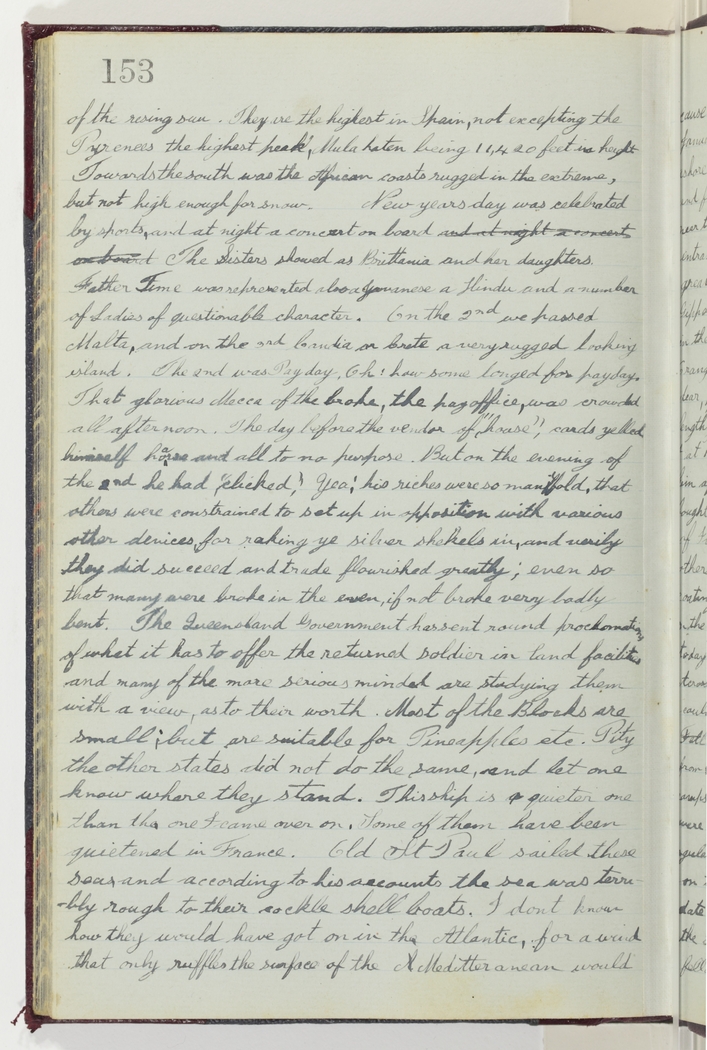 153
of the rising sun. They are the highest in Spain, not excepting the
Pyrenees the highest peak, Mulahaten being 11,420 feet in height
Towards the south was the African coasts rugged in the extreme,
but not high enough for snow. New years day was celebrated
by sports, and at night a concert on board and at night a concert
on board The Sisters showed as Brittania and her daughters.
Father Time was represented also a Javanese a Hindu and a number
of Ladies of questionable character. On the 2nd we passed
Malta, and on the 3rd Candia or Crete a very rugged looking
island. The 2nd was Pay day, Oh! how some longed for payday.
That glorious Mecca of the broke, the pay office, was crowded
all afternoon. The day before the vendor of "house", cards yelled
himself hoarse and all to no purpose. But on the evening of
the 2nd he had "clicked". Yea; his riches were so manifold, that
others were constrained to set up in opposition with various
other devices, for raking ye silver shekels in, and verily
they did succeed and trade flourished greatly; even so
that many were broke in the even, if not broke very badly
bent. The Queensland Government has sent round proclamations
of what it has to offer the returned soldier in land facilities
and many of the more serious minded are studying them
with a view, as to their worth. Most of the Blocks are
small; but are suitable for Pineapples etc. Pity
the other states did not do the same, and let one
know where they stand. This ship is a quieter one
than the one I came over on. Some of them have been
quietened in France. Old St Paul sailed these
seas and according to his accounts the sea was terri-
-bly rough to their cockle shell boats. I dont know
how they would have got on in the Atlantic, for a wind
that only ruffles the surface of the Meditteranean would